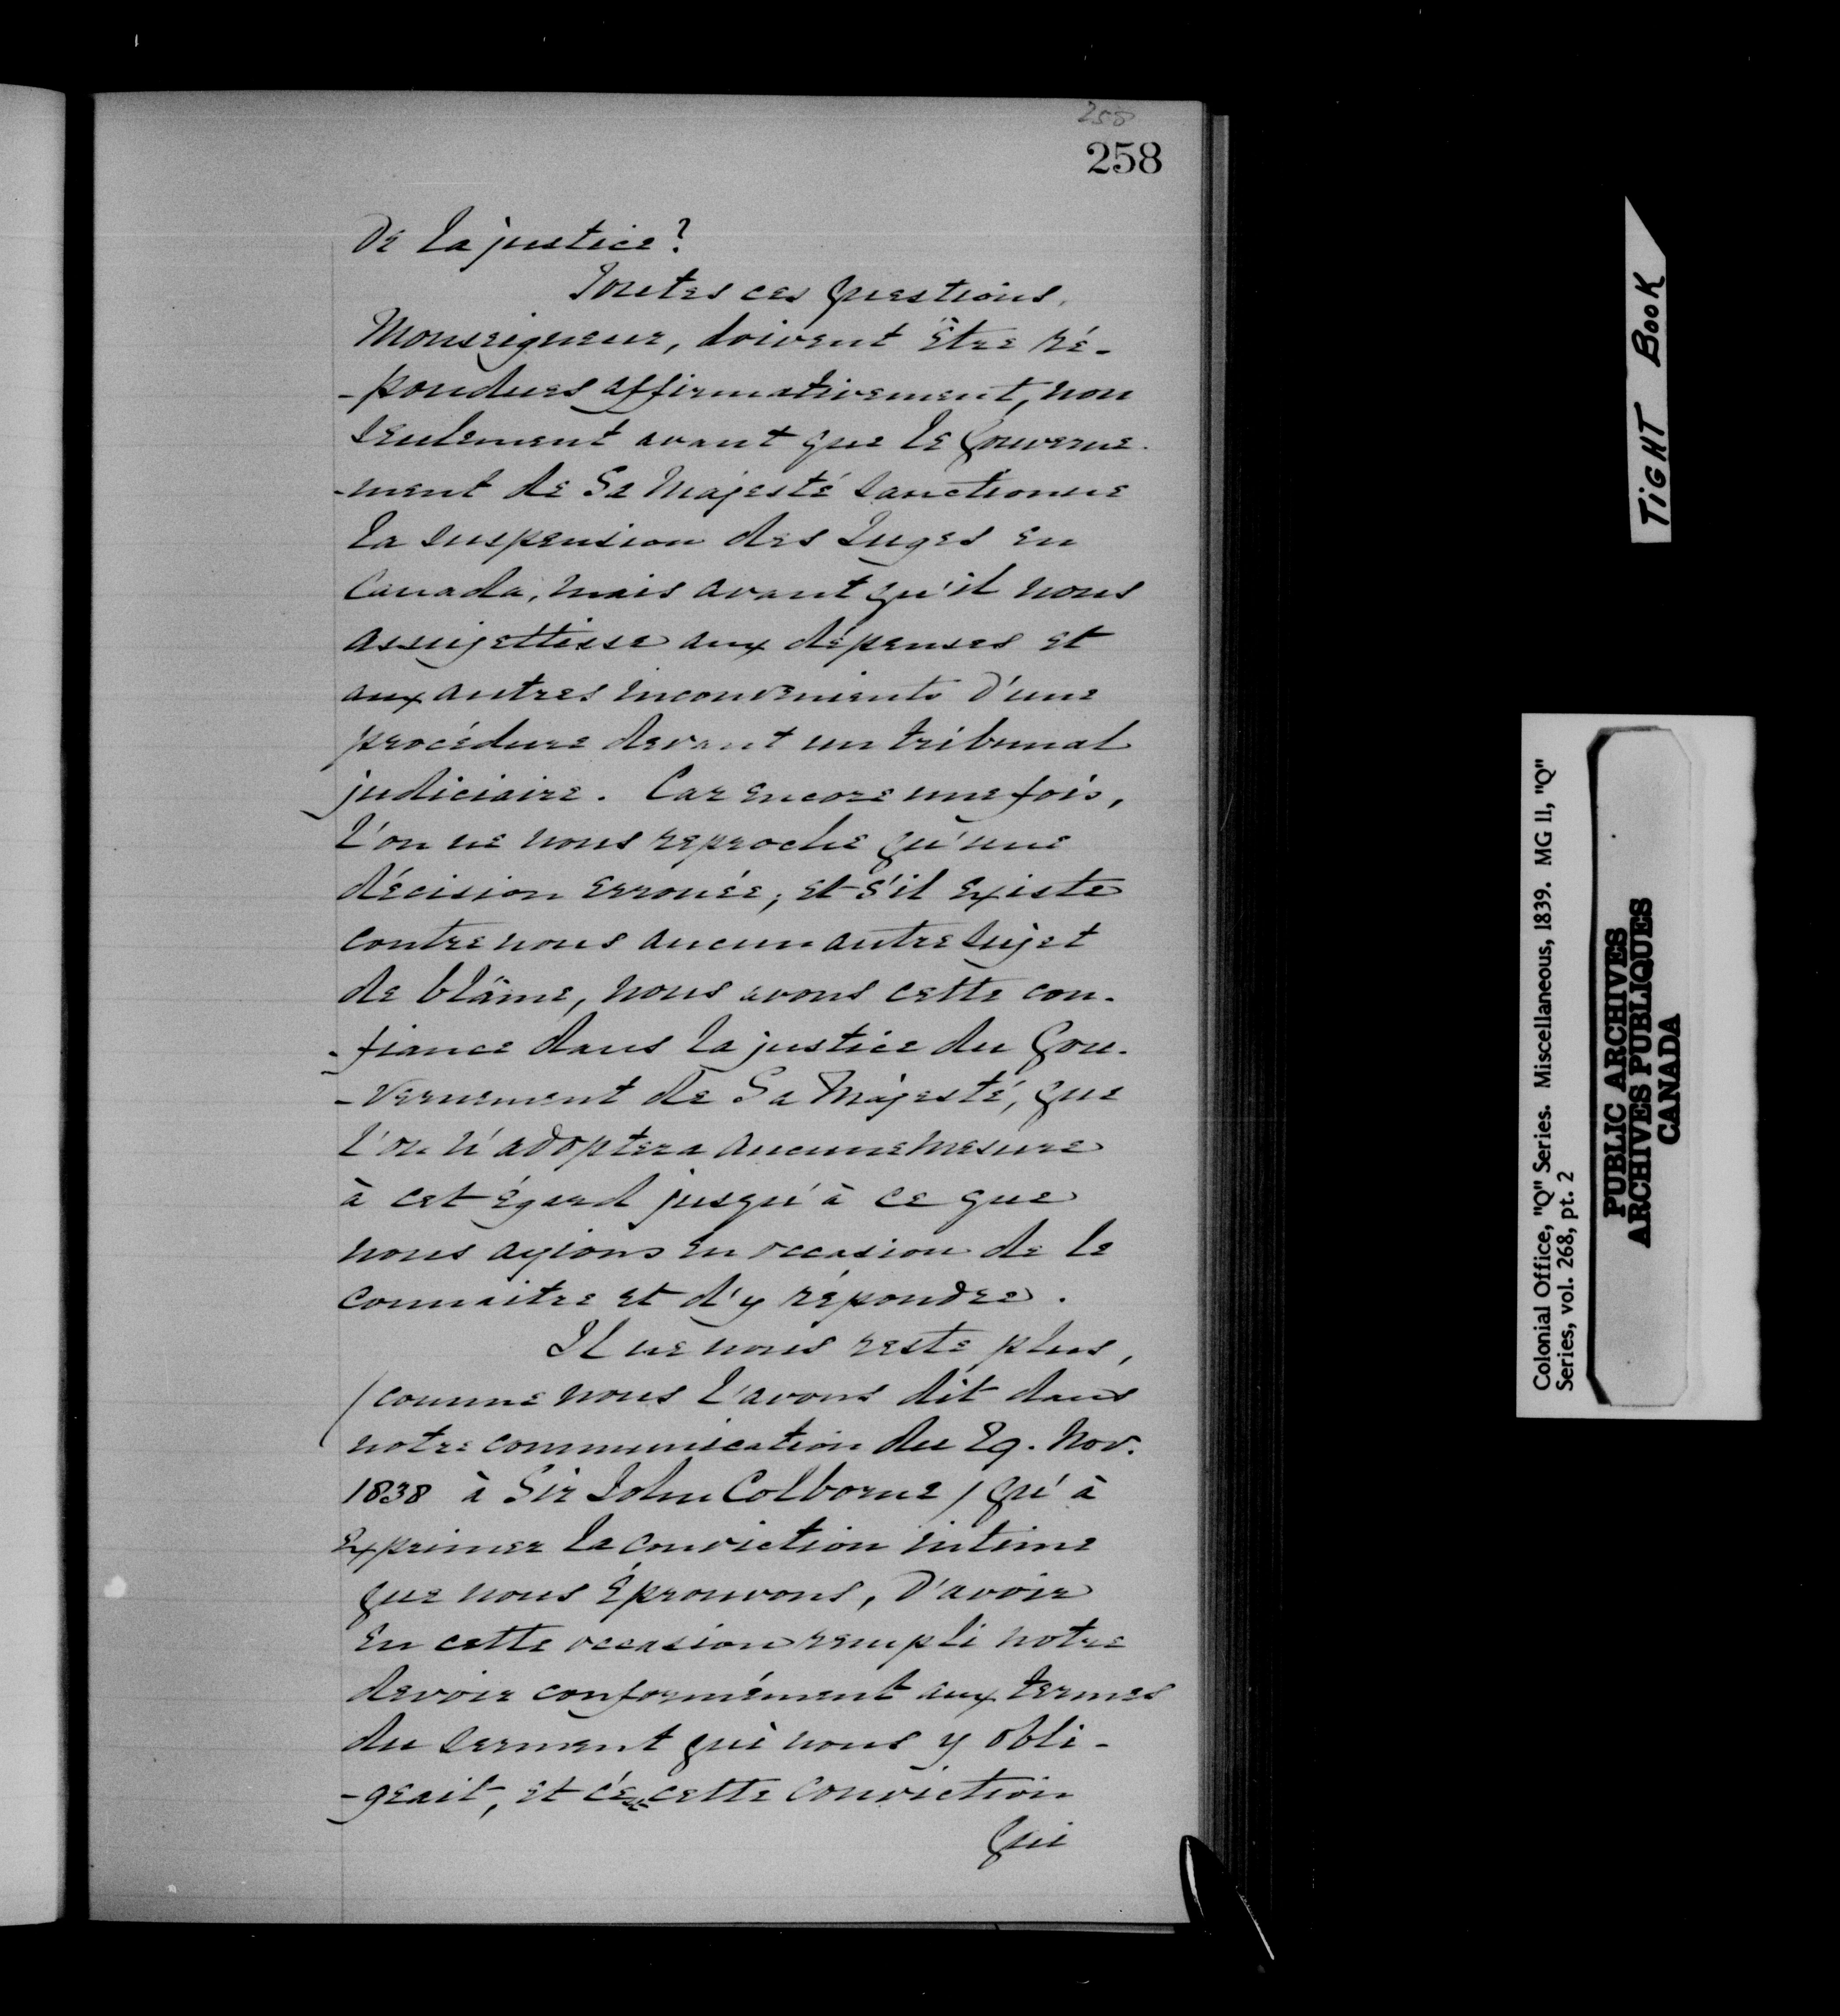 258
258
de la justice?
Toutes ces questions,
Monseigneur, doivent être ré-
-pondues affirmativement, non
seulement avant que le Gouverne-
-ment de Sa Majesté sanctionne
la suspension des Juges en
Canada, mais avant qu'il nous
assujettisse aux dépenses et
aux autres inconvenients d'une
procédure devant un tribunal
judiciaire. Car encore une fois,
l'on ne nous reproche qu'une
décision erronée; et s'il existe
contre nous aucun autre sujet
de blâme, nous avons cette con-
-fiance dans la justice du Gou-
-vernement de Sa Majesté, que
l'on n'adoptera aucune mesure
à cet égard jusqu'à ce que
nous ayions eu occasion de le
connaitre et d'y répondre.
Il ne nous reste plus,
(comme nous l'avons dit dans
notre communication du 29. Nov.
1838 à Sir John Colborne) qu'à
exprimer la conviction intime
que nous éprouvons, d'avoir
en cette occasion rempli notre
devoir conformément aux termes
du serment qui nous y obli-
-geait, et c'est cette conviction
qui
TIGHT BOOK
Colonial Office, "Q" Series. Miscellaneous, 1839. MG 11, "Q"
Series, vol. 268, pt. 2
PUBLIC ARCHIVES
ARCHIVES PUBLIQUES
CANADA